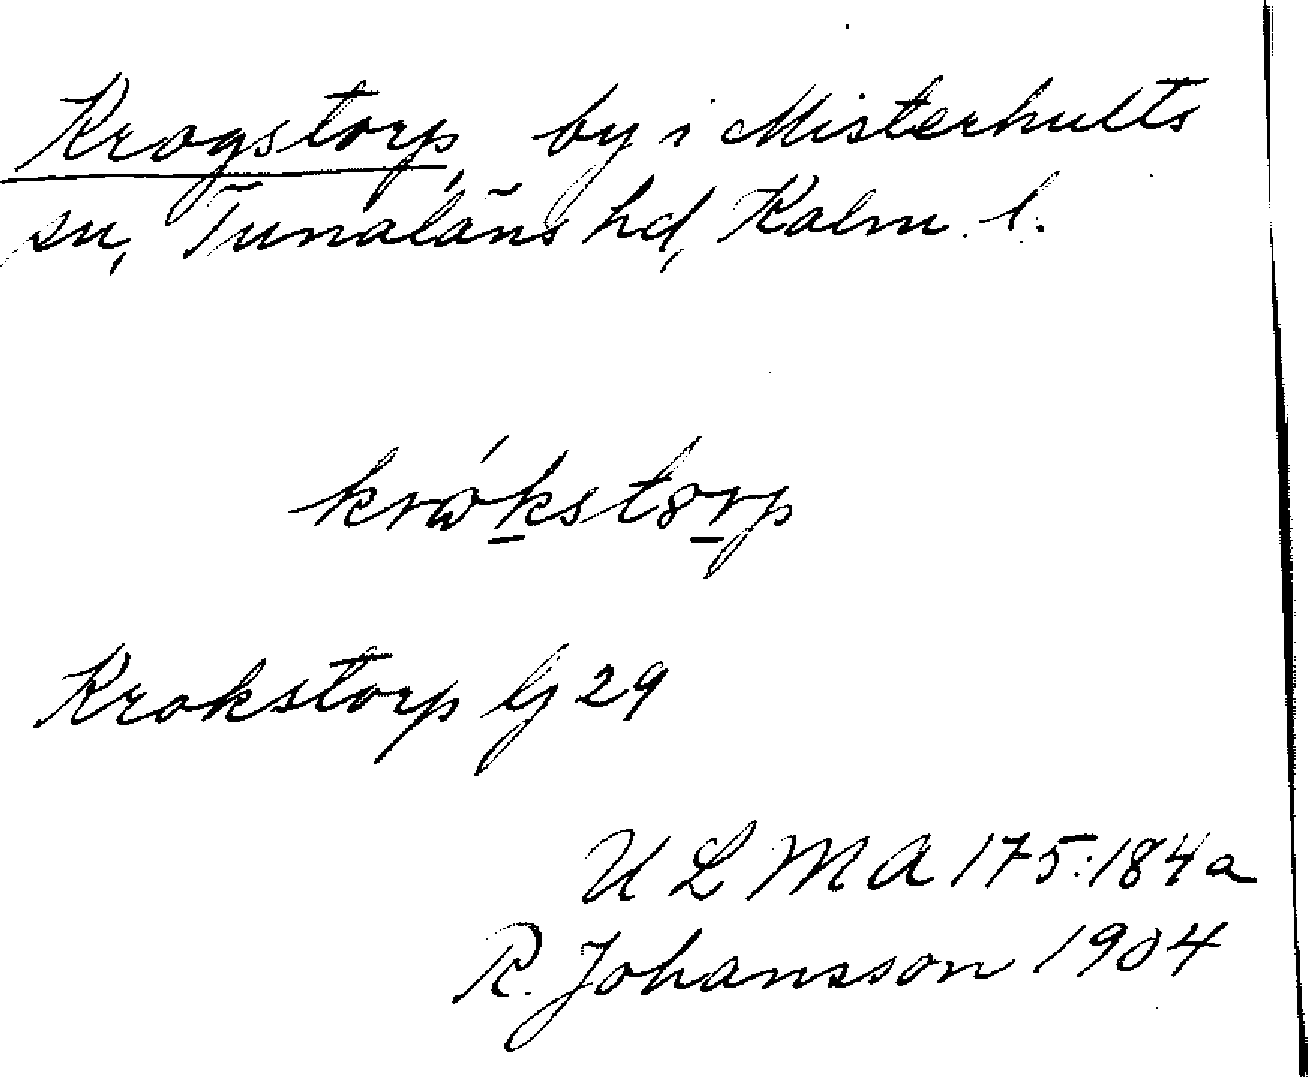 Krogstorp, by i Misterhults
sn, Tunaläns hd, Kalm. l.
krókstorp
Krokstorp lj 29
ULMA 175:184a
R. Johansson 1904